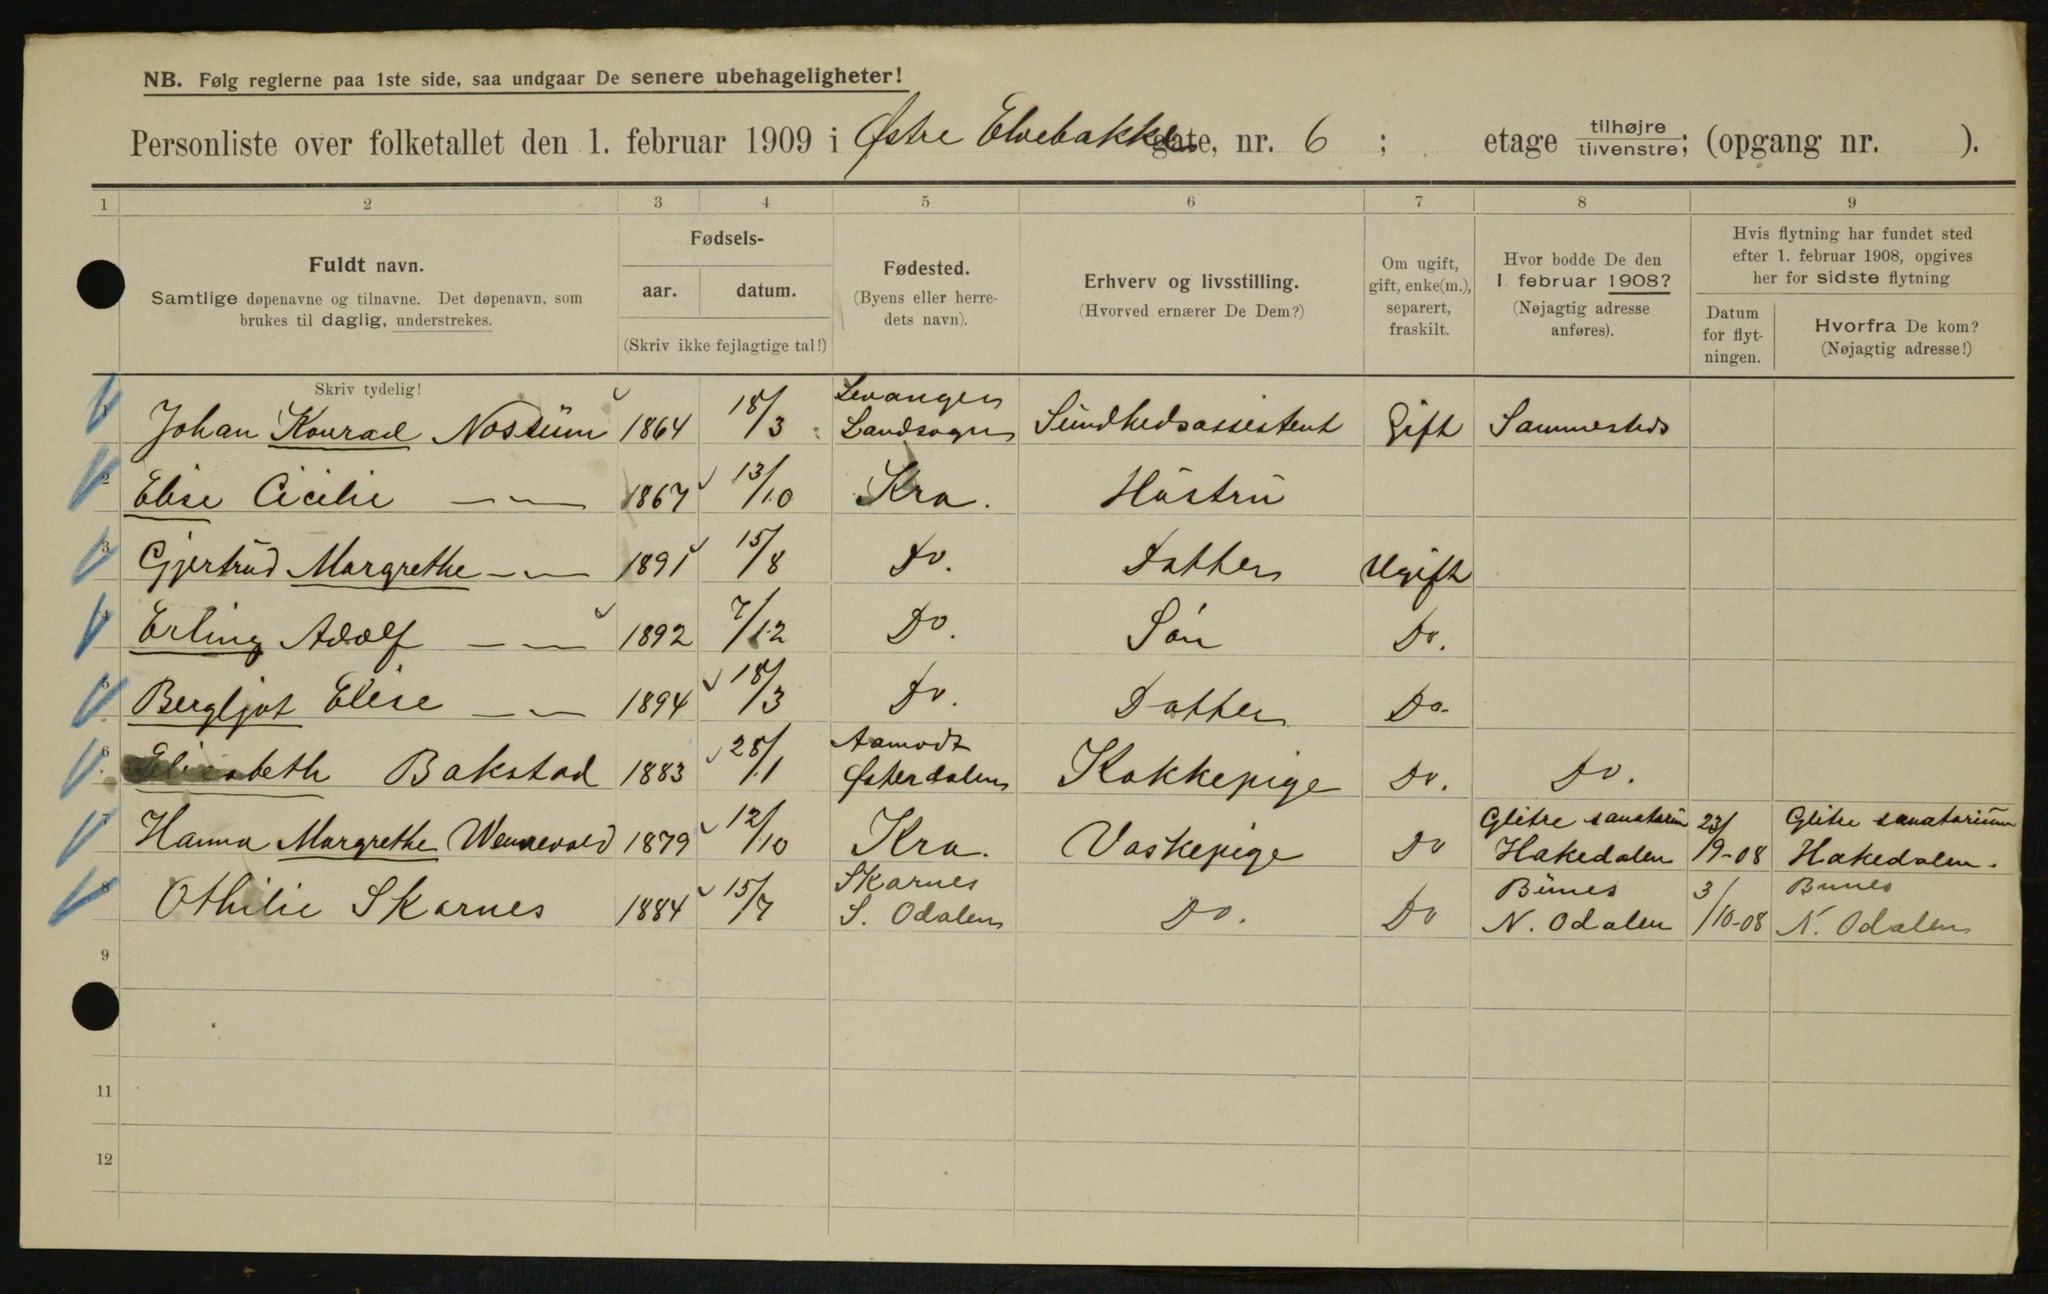 NB. Følg reglerne paa 1ste side, saa undgaar De senere ubehageligheter!
Personliste over folketallet den 1. februar 1909 i Østre Elvebakke gate, nr. 6 ; etage tilhøjre tilvenstre; (opgang nr. ).
1 2 3 4 5 6 7 8 9
Fuldt navn.
Samtlige døpenavne og tilnavne. Det døpenavn, som
brukes til daglig, understrekes.
Skriv tydelig!
Fødsels-
aar. datum.
(Skriv ikke fejlagtige tal!)
Fødested.
(Byens eller herre-
dets navn).
Erhverv og livsstilling.
(Hvorved ernærer De Dem?)
Om ugift,
gift, enke(m.),
separert,
fraskilt.
Hvor bodde De den
1. februar 1908?
(Nøjagtig adresse
anføres).
Hvis flytning har fundet sted
efter 1. februar 1908, opgives
her for sidste flytning
Datum
for flyt-
ningen.
Hvorfra De kom?
(Nøjagtig adresse!)
1 Johan Konrad Nossüm 1864 18/3 Levanger Landsogn Sündhedsassistent Gift Sammesteds
2 Elise Cicilie — — 1867 13/10 Kra. Hüstrü
3 Gjertrüd Margrethe — — 1891 15/8 Do. Datter Ugift
4 Erling Adolf — — 1892 7/12 Do. Søn Do.
5 Bergljot Elise — — 1894 18/3 Do. Datter Do.
6 Elisabeth Bakstad 1883 28/11 Aamodt Østerdalen Kokkepige Do. Do.
7 Hanna Margrethe Wennevold 1879 12/10 Kra. Vaskepige Do Glitre sanatoriüm Hakedalen 23/9-08 Glitre sanatoriüm Hakedalen.
8 Othilie Skarnes 1884 15/7 Skarnes S. Odalen Do. Do Bünes N. Odalen 3/10-08 Bunes N. Odalen
9
11
12